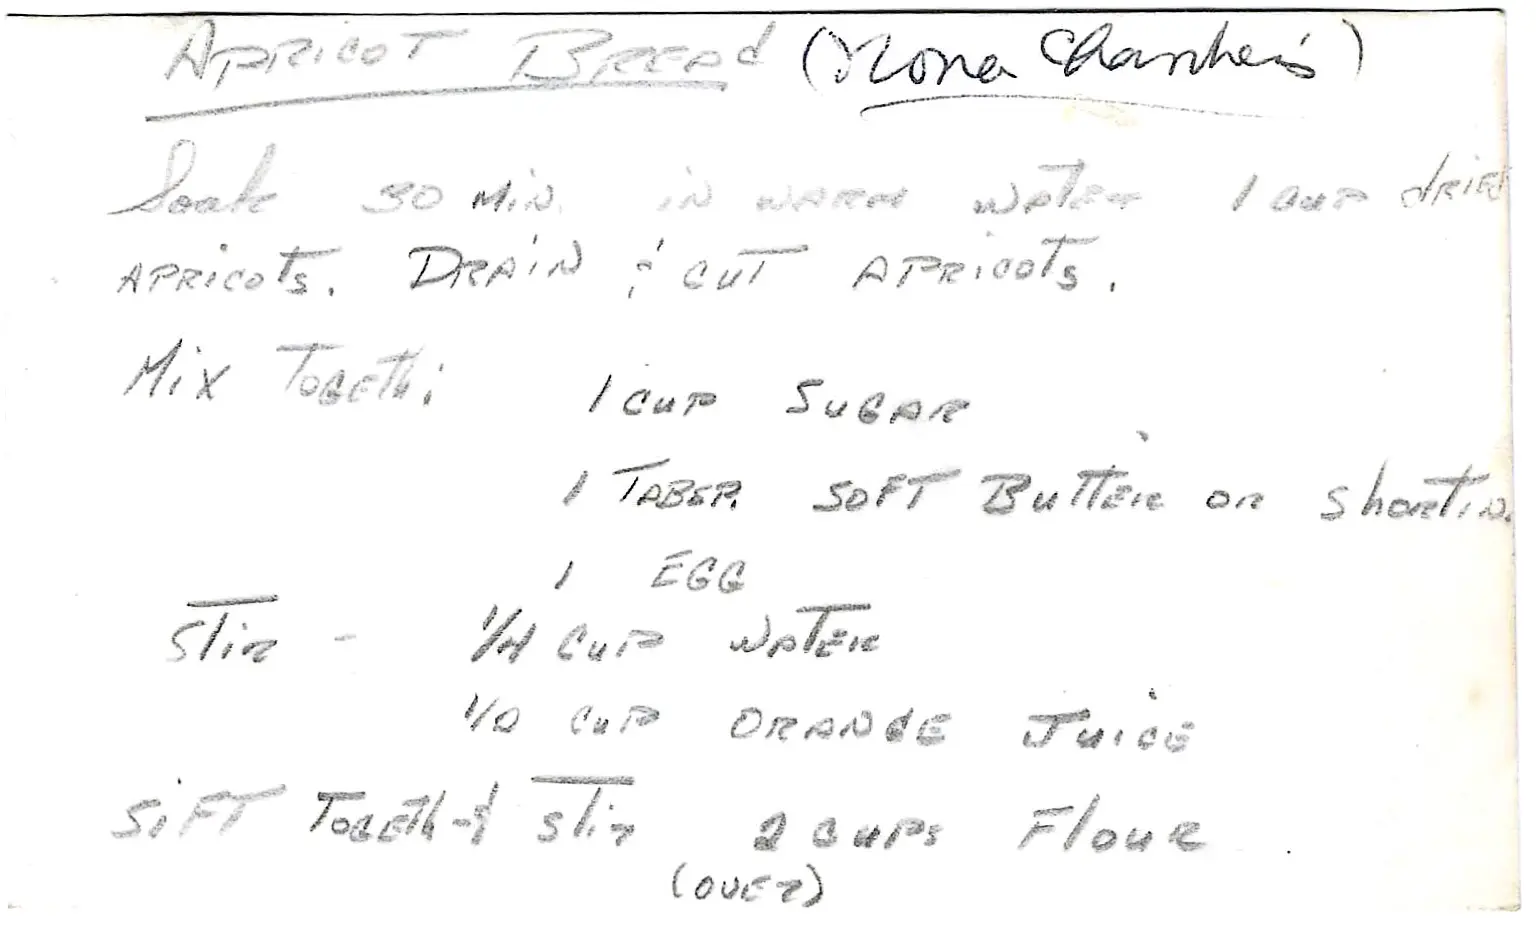 APRICOT BREAd (Mona
Soak 30 MiN. iN WARM WATER 1 CUP dRiEd
APRiCOTS. DRAiN & CUT APRiCOTS.
MiX TOGETh:
1 CUP SUGAR
1 TABSP. SOFT BUTTER OR ShORTiN.
1 EGG
STiR - 1/4 CUP WATER
1/2 CUP ORANGE JUiCE
SiFT TOGETh - & STiR 2 CUPS FlOUR
(OVER)